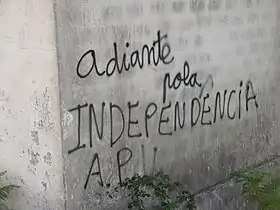 adiante
pola
INDEPENDENCIA
A.P.U.